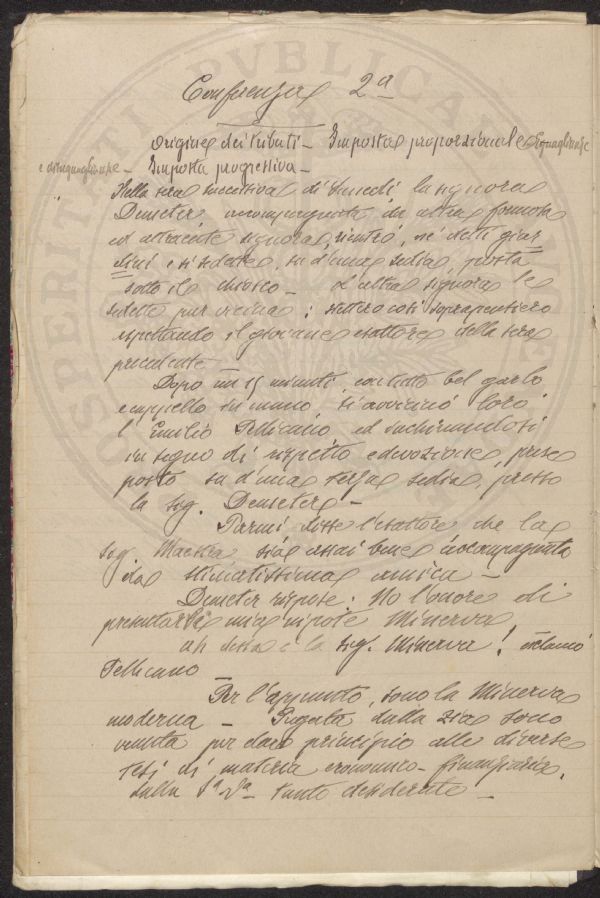 Conferenza 2ª
Origine dei tributi - Imposta proporzionale Eguaglianze
e disuguaglianze - Imposta progressiva -
Nella sera successiva di lunedì la signora
Demeter accompagnata da altra formosa
ed attraente signora, rientrò, ne' detti giar
dini e si sedette, su d'una sedia, posta
sotto il chiosco - L'altra signora le
sedette pur vicina; stettero così soprapensiero
aspettando il giovane esattore della sera
precedente
Dopo un 15 minuti, con tutto bel garbo
e cappello in mano si avvicinò loro
l'Emilio Pellicano ed inchinandosi
in segno di rispetto e devozione, prese
posto su d'una terza sedia, presso
la sig. Demeter -
Parmi disse l'esattore che la
sig. Maestra sia assai bene accompagnata
da stimatissima amica -
Demeter rispose: Ho l'onore di
presentarle mia nipote Minerva
ah dessa è la sig. Minerva! esclamò
Pellicano
Per l'appunto, sono la Minerva
moderna - Pregata dalla zia sono
venuta per dare principio alle diverse
tesi di materia economico-finanziaria,
dalla S.ª V.ª tanto desiderate -